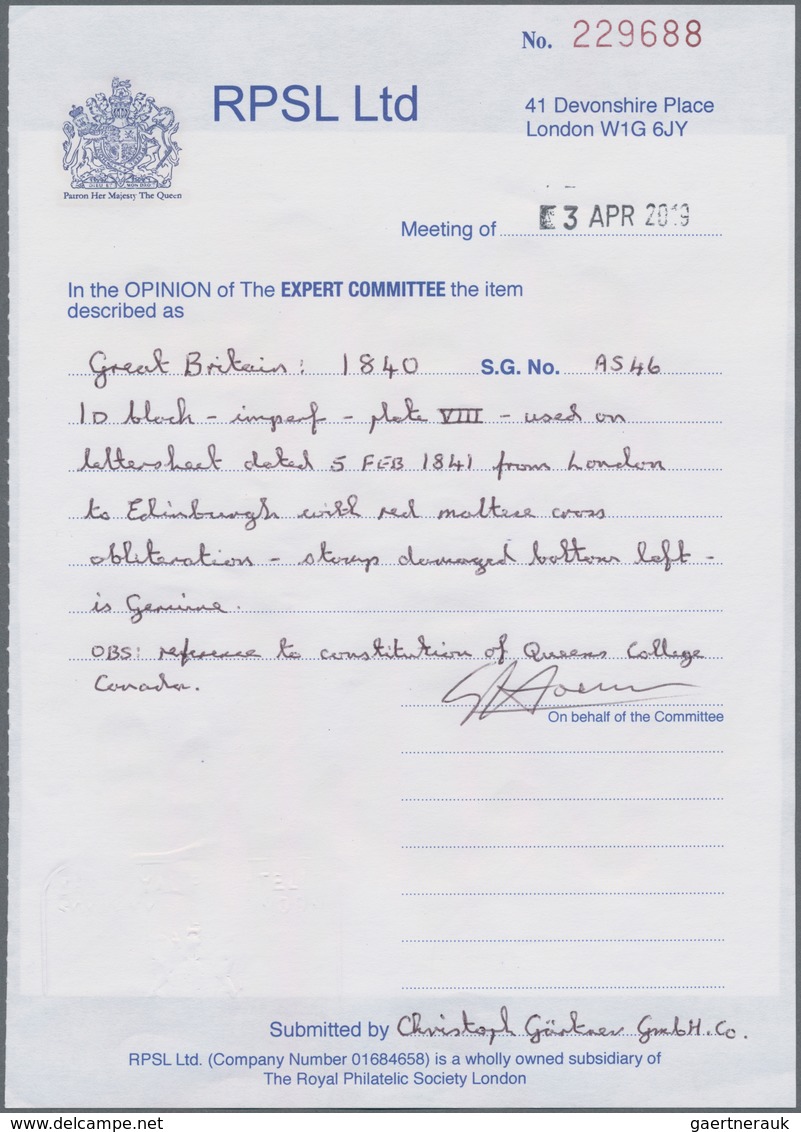 No. 229688
RPSL Ltd
41 Devonshire Place
London W1G 6JY
DIEU ET MON DROIT
Patron Her Majesty The Queen
Meeting of 3 APR 2019
In the OPINION of The EXPERT COMMITTEE the item
described as
Great Britain: 1840 S.G. No. AS46
1D black - imperf - plate VIII - used on
lettersheet dated 5 FEB 1841 from London
to Edinburgh with red maltese cross
obliteration - stamp damaged bottom left -
is Genuine.
OBS: reference to constitution of Queens College
Canada.
On behalf of the Committee
Submitted by Christoph Gärtner GmbH. Co.
RPSL Ltd. (Company Number 01684658) is a wholly owned subsidiary of
The Royal Philatelic Society London
gaertnerauk